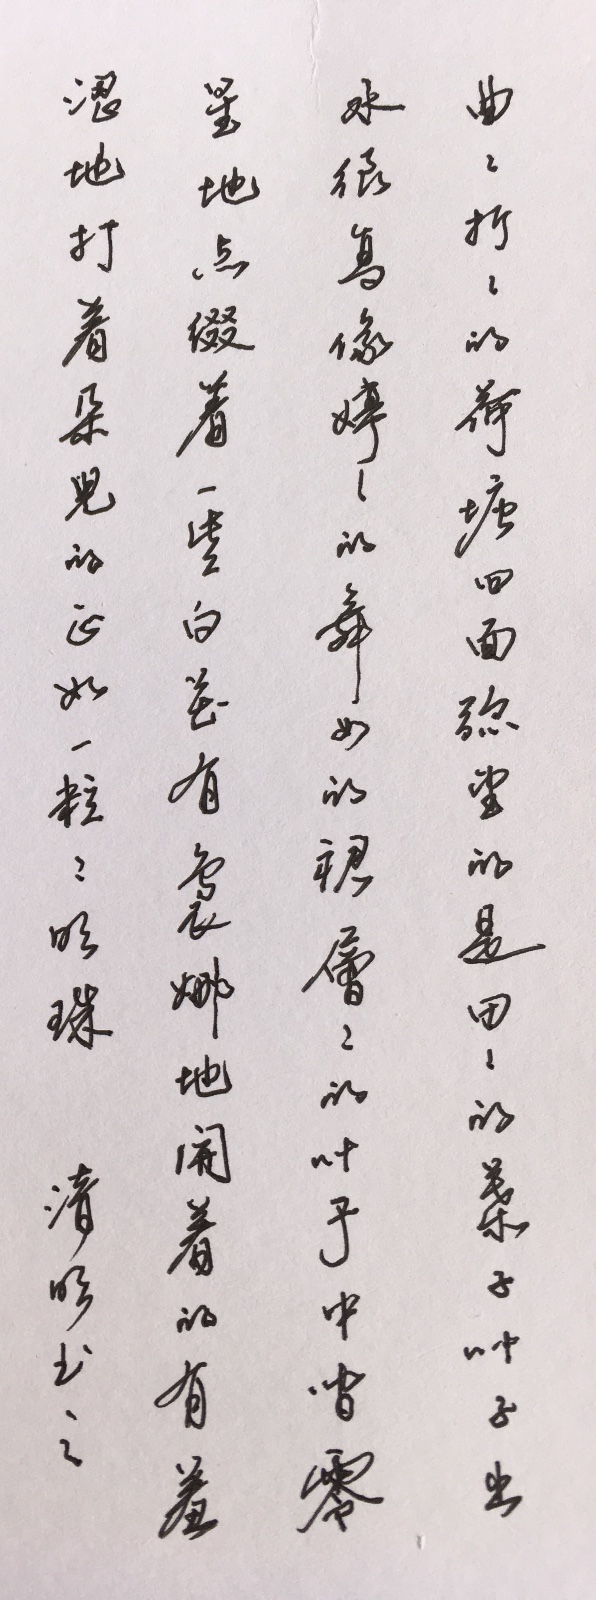 曲〻折〻的荷塘四面弥望的是田〻的葉子叶子出
水很高像婷〻的舞女的裙層〻的叶子中间零
星地点缀着一些白花有袅娜地開着的有羞
涩地打着朵兒的正如一粒〻明珠 清明书之